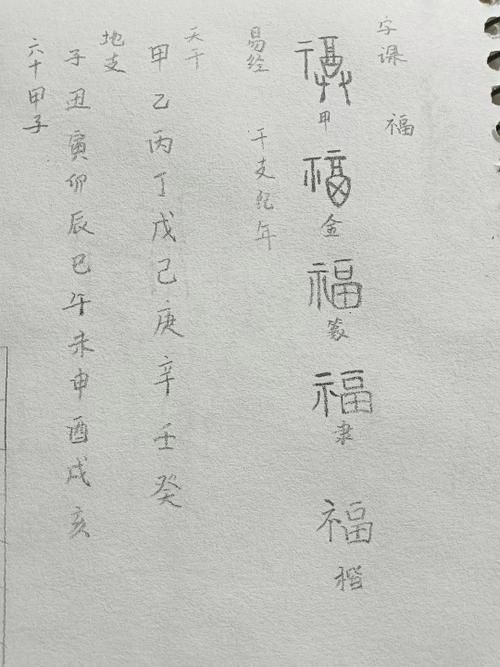 字课
福
福
甲
福
金
福
篆
福
隶
福
楷
易经
干支纪年
天干
甲乙丙丁戊己庚辛壬癸
地支
子丑寅卯辰巳午未申酉戌亥
六十甲子